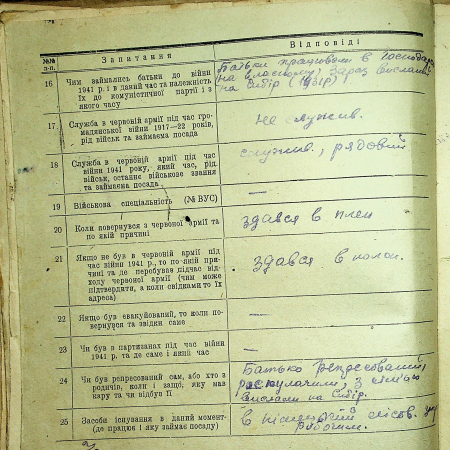 №№ п-п.
Запитання
Відповіді
16
Чим займались батьки до війни
1941 р. і в даний час та належність
їх до комуністичної партії і з
якого часу
Батьки працювали в господар
на власному, зараз вислані
на Сибір
17
Служба в червоній армії під час гро-
мадянської війни 1917—22 років,
рід військ та займаєма посада
не служив.
18
Служба в червоній армії під час
війни 1941 року, який час, рід
військ, останнє військове звання
та займаєма посада
служив, рядовий
19
Військова спеціальність (№ ВУС)
—
20
Коли повернувся з червоної армії та
по якій причині
здався в плен
21
Якщо не був в червоній армії під
час війни 1941 р., то по якій при-
чині та де перебував підчас від-
ходу червоної армії (чим може
підтвердити, а коли свідками то їх
адреса)
здався в полон.
22
Якщо був евакуйований, то коли по-
вернувся та звідки саме
—
23
Чи був в партизанах під час війни
1941 р. та де саме і який час
—
24
Чи був репресований сам, або хто з
родичів, коли і защо, яку мав
кару та чи відбув її
Батько репресований,
розкулачили, з сім'єю
вислали на Сибір.
25
Засоби існування в даний момент-
(де працює і яку займає посаду)
в німецькій
робочим.